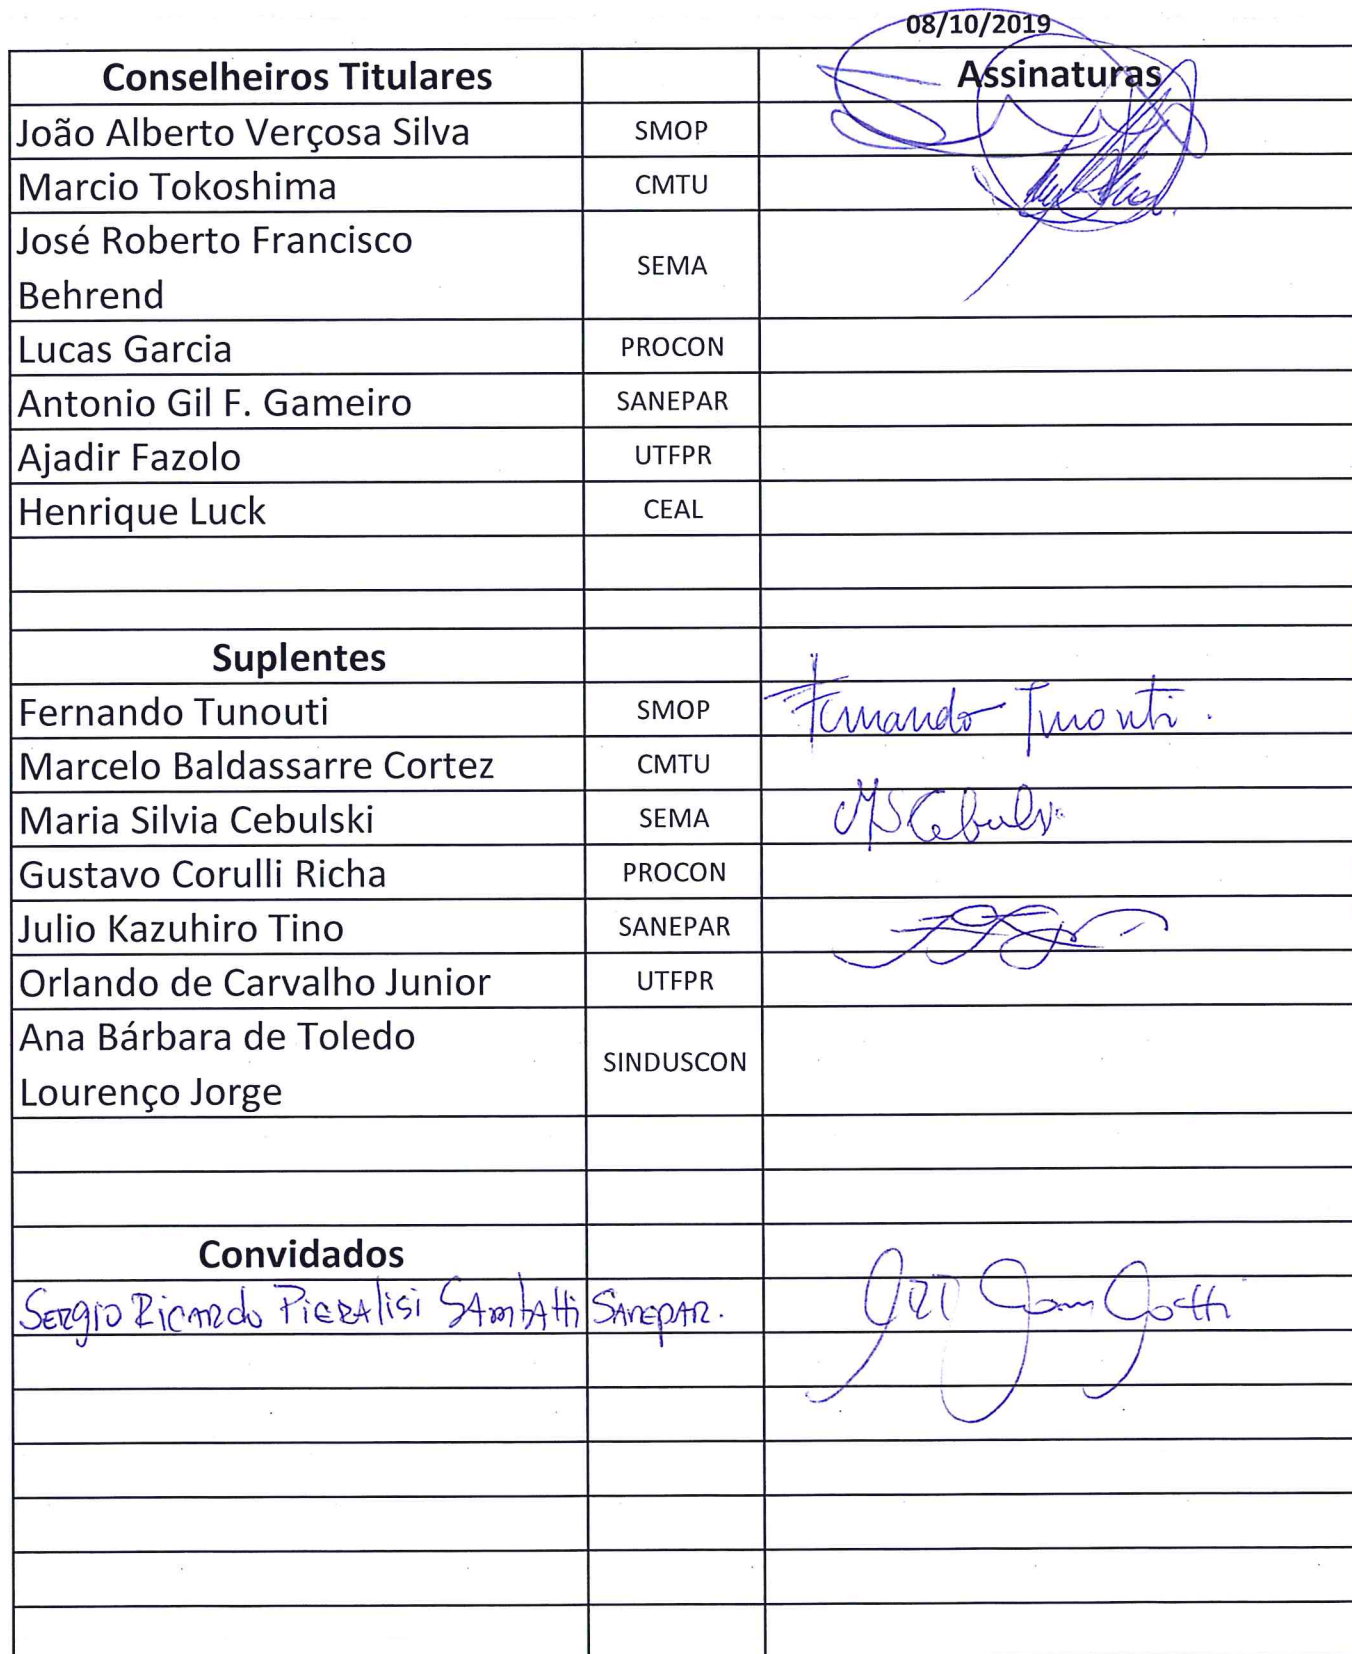 08/10/2019
Conselheiros Titulares Assinaturas
João Alberto Verçosa Silva SMOP
Marcio Tokoshima CMTU
José Roberto Francisco
Behrend SEMA
Lucas Garcia PROCON
Antonio Gil F. Gameiro SANEPAR
Ajadir Fazolo UTFPR
Henrique Luck CEAL
Suplentes
Fernando Tunouti SMOP Fernando Tunouti.
Marcelo Baldassarre Cortez CMTU
Maria Silvia Cebulski SEMA MSCebulski
Gustavo Corulli Richa PROCON
Julio Kazuhiro Tino SANEPAR
Orlando de Carvalho Junior UTFPR
Ana Bárbara de Toledo
Lourenço Jorge SINDUSCON
Convidados
Sergio Ricardo Pieralisi Sambatti Sanepar.